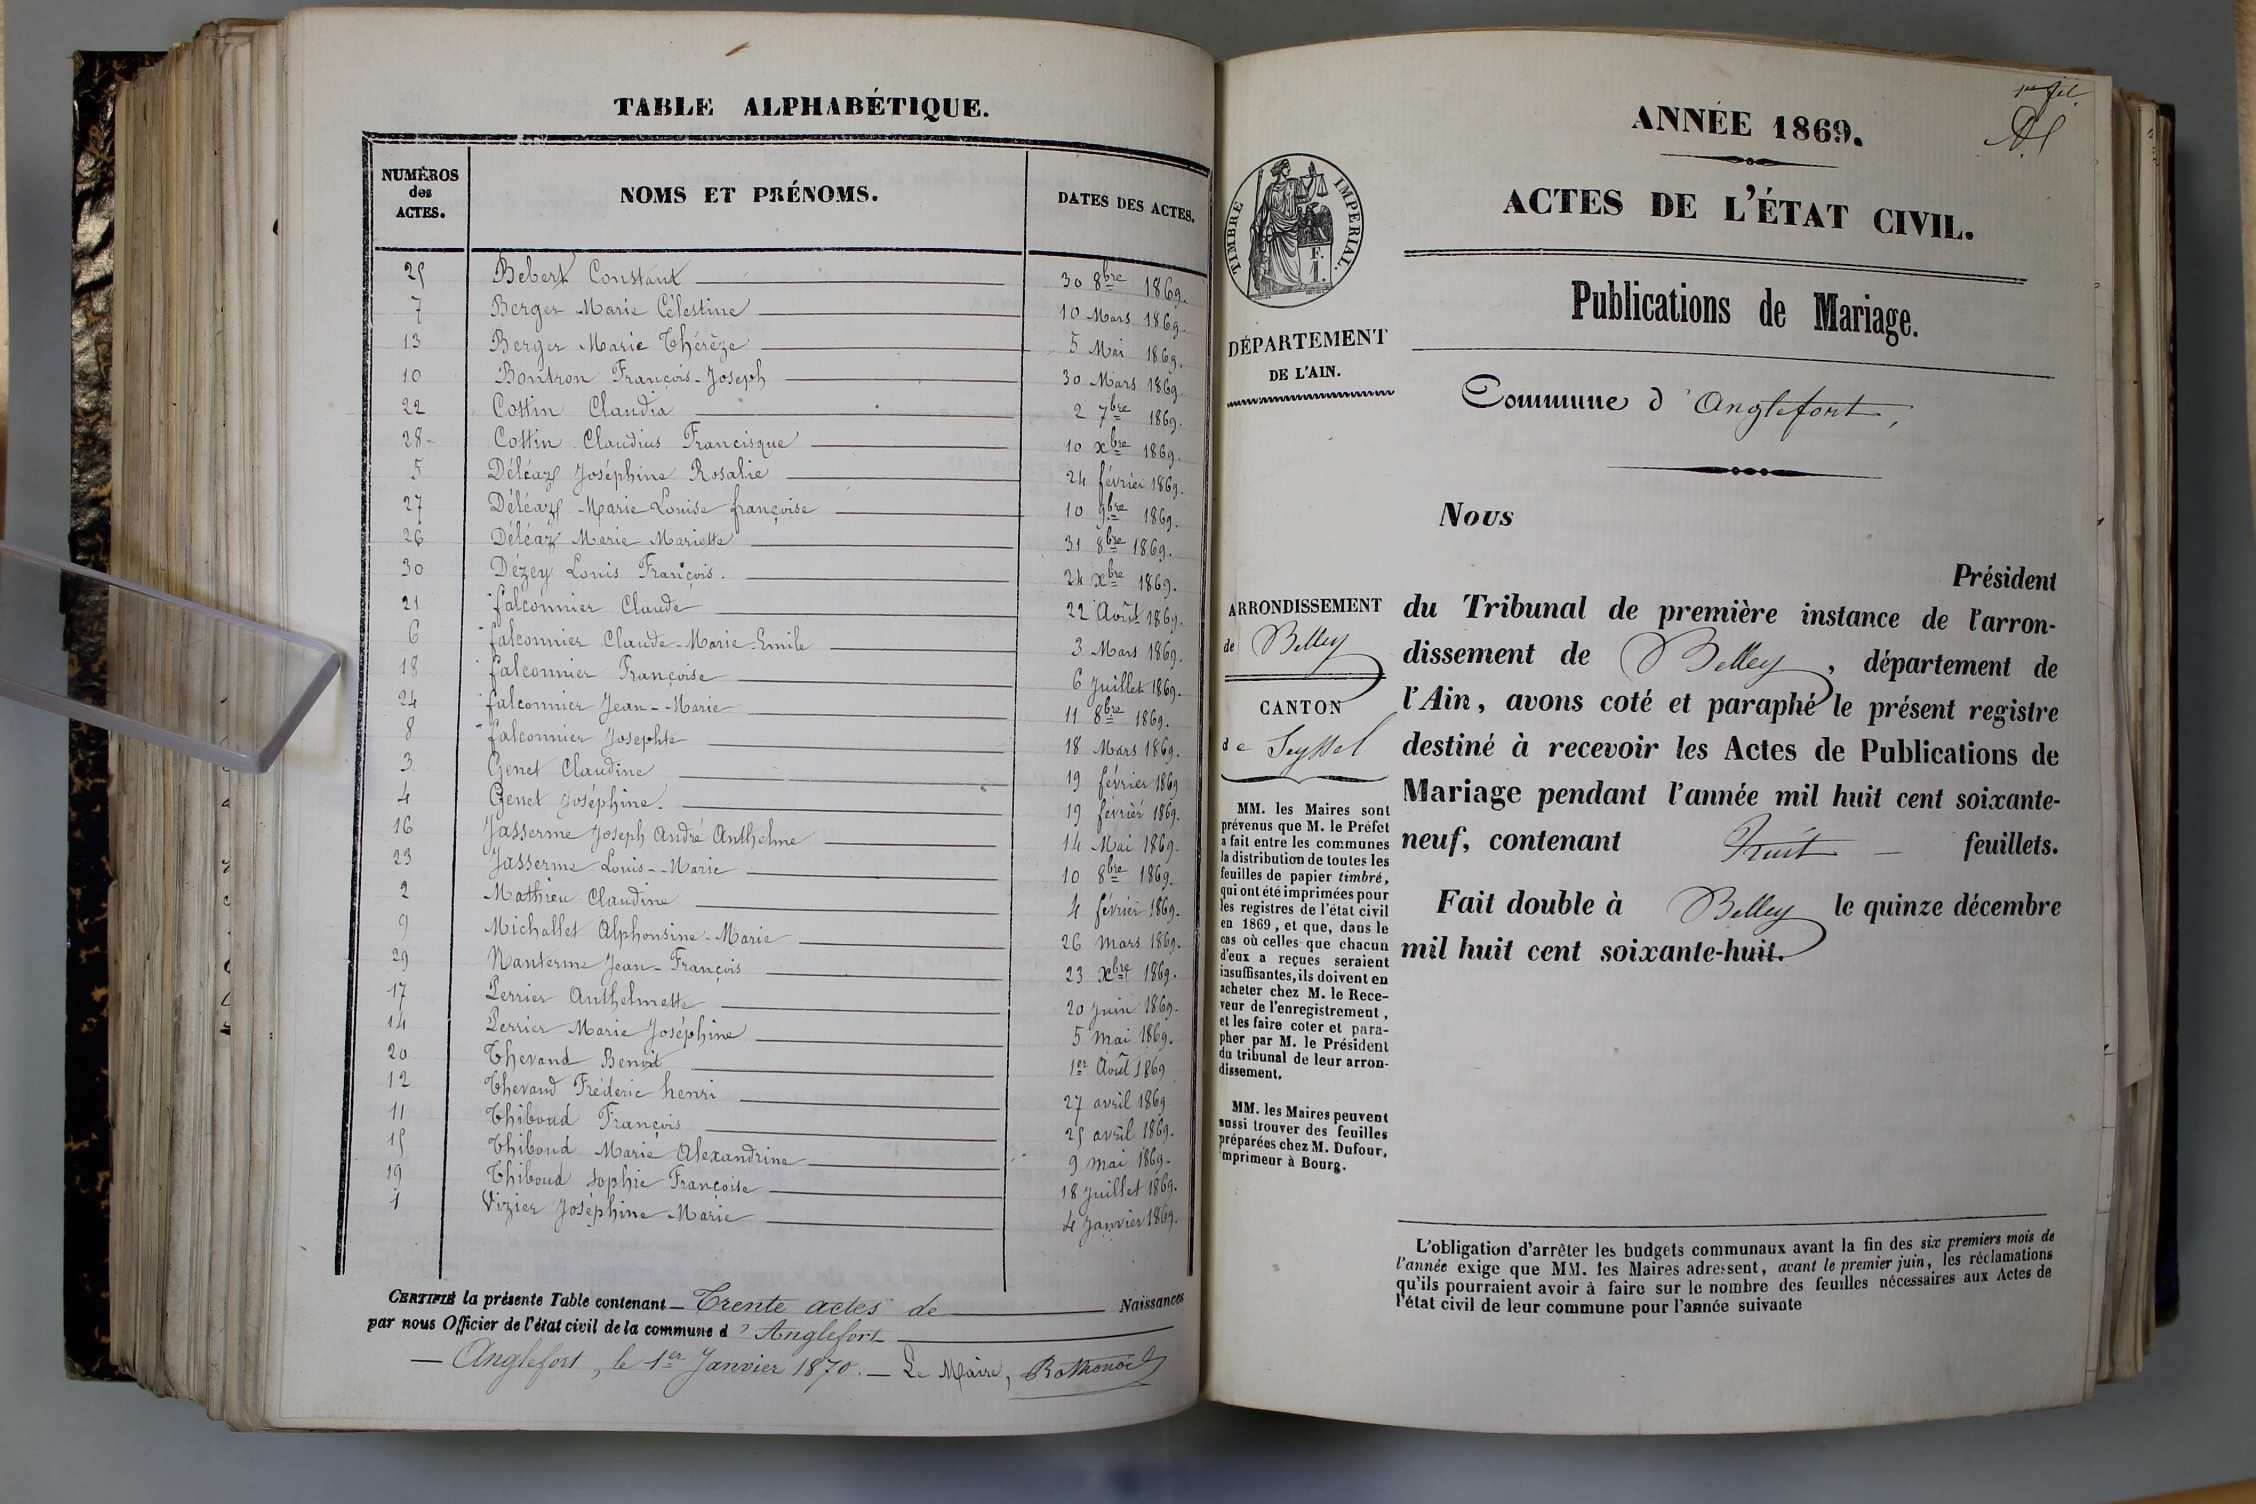 TABLE ALPHABÉTIQUE.
NUMÉROS des ACTES. NOMS ET PRÉNOMS. DATES DES ACTES.
25 Bebert Constant 30 8bre 1869.
7 Berger Marie Célestine 10 Mars 1869.
13 Berger Marie Thérèze 5 Mai 1869.
10 Bontron François-Joseph 30 Mars 1869.
22 Cottin Claudia 2 7bre 1869.
28 Cottin Claudius Francisque 10 xbre 1869.
5 Déléaz Joséphine Rosalie 24 février 1869.
27 Déléaz Marie Louise françoise 10 9bre 1869.
26 Déléaz Marie Mariette 31 8bre 1869.
30 Dézey Louis François. 24 xbre 1869.
21 falconnier Claude 22 Août 1869.
6 falconnier Claude-Marie-Emile 3 Mars 1869.
18 falconnier Françoise 6 Juillet 1869.
24 falconnier Jean-Marie 11 8bre 1869.
8 falconnier Josephte 18 Mars 1869.
3 Genet Claudine 19 février 1869
4 Genet Joséphine. 19 février 1869.
16 Jasserme Joseph André Anthelme 14 Mai 1869.
23 Jasserme Louis-Marie 10 8bre 1869.
2 Mathieu Claudine 4 février 1869.
9 Michallet Alphonsine-Marie 26 mars 1869.
29 Nanterme Jean-François 23 Xbre 1869.
17 Perrier Anthelmette 20 Juin 1869.
14 Perrier Marie Joséphine 5 mai 1869.
20 Thevand Benoit 1er Août 1869
12 Thevand Fréderic henri 27 avril 1869
11 Thiboud François 25 avril 1869.
15 Thiboud Marie Alexandrine 9 mai 1869.
19 Thiboud Sophie Françoise 18 Juillet 1869.
1 Vizier Joséphine Marie 4 Janvier 1869.
CERTIFIÉ la présente Table contenant Trente actes de Naissances
par nous Officier de l'état civil de la commune d'Anglefort
Anglefort, le 1er Janvier 1870. Le Maire,
ANNÉE 1869.
ACTES DE L'ÉTAT CIVIL.
TIMBRE IMPERIAL.
F.
1.
Publications de Mariage.
DÉPARTEMENT
DE L'AIN.
Commune d'Anglefort,
Nous
Président
du Tribunal de première instance de l'arron-
dissement de Belley, département de
l'Ain, avons coté et paraphé le présent registre
destiné à recevoir les Actes de Publications de
Mariage pendant l'année mil huit cent soixante-
neuf, contenant huit feuillets.
Fait double à Belley le quinze décembre
mil huit cent soixante-huit.
ARRONDISSEMENT
de Belley
CANTON
de Seyssel
MM. les Maires sont
prévenus que M. le Préfet
a fait entre les communes
la distribution de toutes les
feuilles de papier timbré,
qui ont été imprimées pour
les registres de l'état civil
en 1869, et que, dans le
cas où celles que chacun
d'eux a reçues seraient
insuffisantes, ils doivent en
acheter chez M. le Rece-
veur de l'enregistrement,
et les faire coter et para-
pher par M. le Président
du tribunal de leur arron-
dissement.
MM. les Maires peuvent
aussi trouver des feuilles
préparées chez M. Dufour,
imprimeur à Bourg.
L'obligation d'arrêter les budgets communaux avant la fin des six premiers mois de
l'année exige que MM. les Maires adressent, avant le premier juin, les réclamations
qu'ils pourraient avoir à faire sur le nombre des feuilles nécessaires aux Actes de
l'état civil de leur commune pour l'année suivante